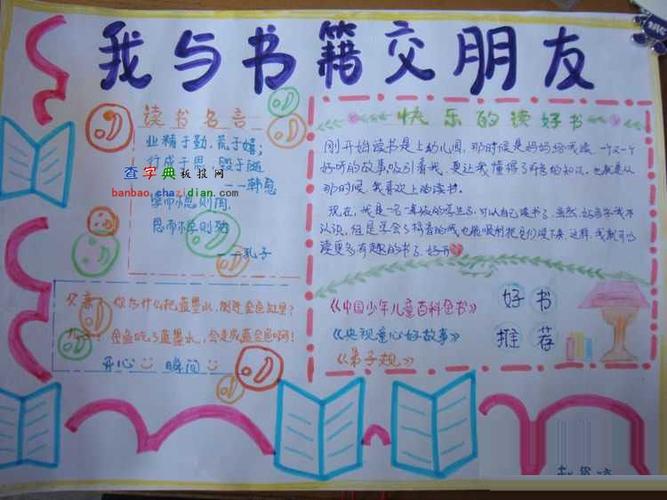 我与书籍交朋友
读书名言
业精于勤,荒于嬉;
行成于思,毁于随
——韩愈
学而不思则罔,
思而不学则殆
——孔子
查字典 板报网
banbao.chazidian.com
快乐的读好书
刚开始读书是上幼儿园,那时候是妈妈给我读,一个又一个
好听的故事吸引着我,更让我懂得了许多的知识,也就从
那时候,我喜欢上的读书。
现在,我是一名一年级的小学生了,可以自己读书了,虽然好多字我不
认识,但是学会了拼音的我,也能顺利把它们读下来,这样,我就可以
读更多有趣的书了,好开
父亲:你为什么把蓝墨水,倒进金鱼缸里?
儿子:金鱼吃了蓝墨水,会变成蓝金鱼啊!
开心 瞬间
好书
推荐
《中国少年儿童百科全书》
《央视童心好故事》
《弟子规》